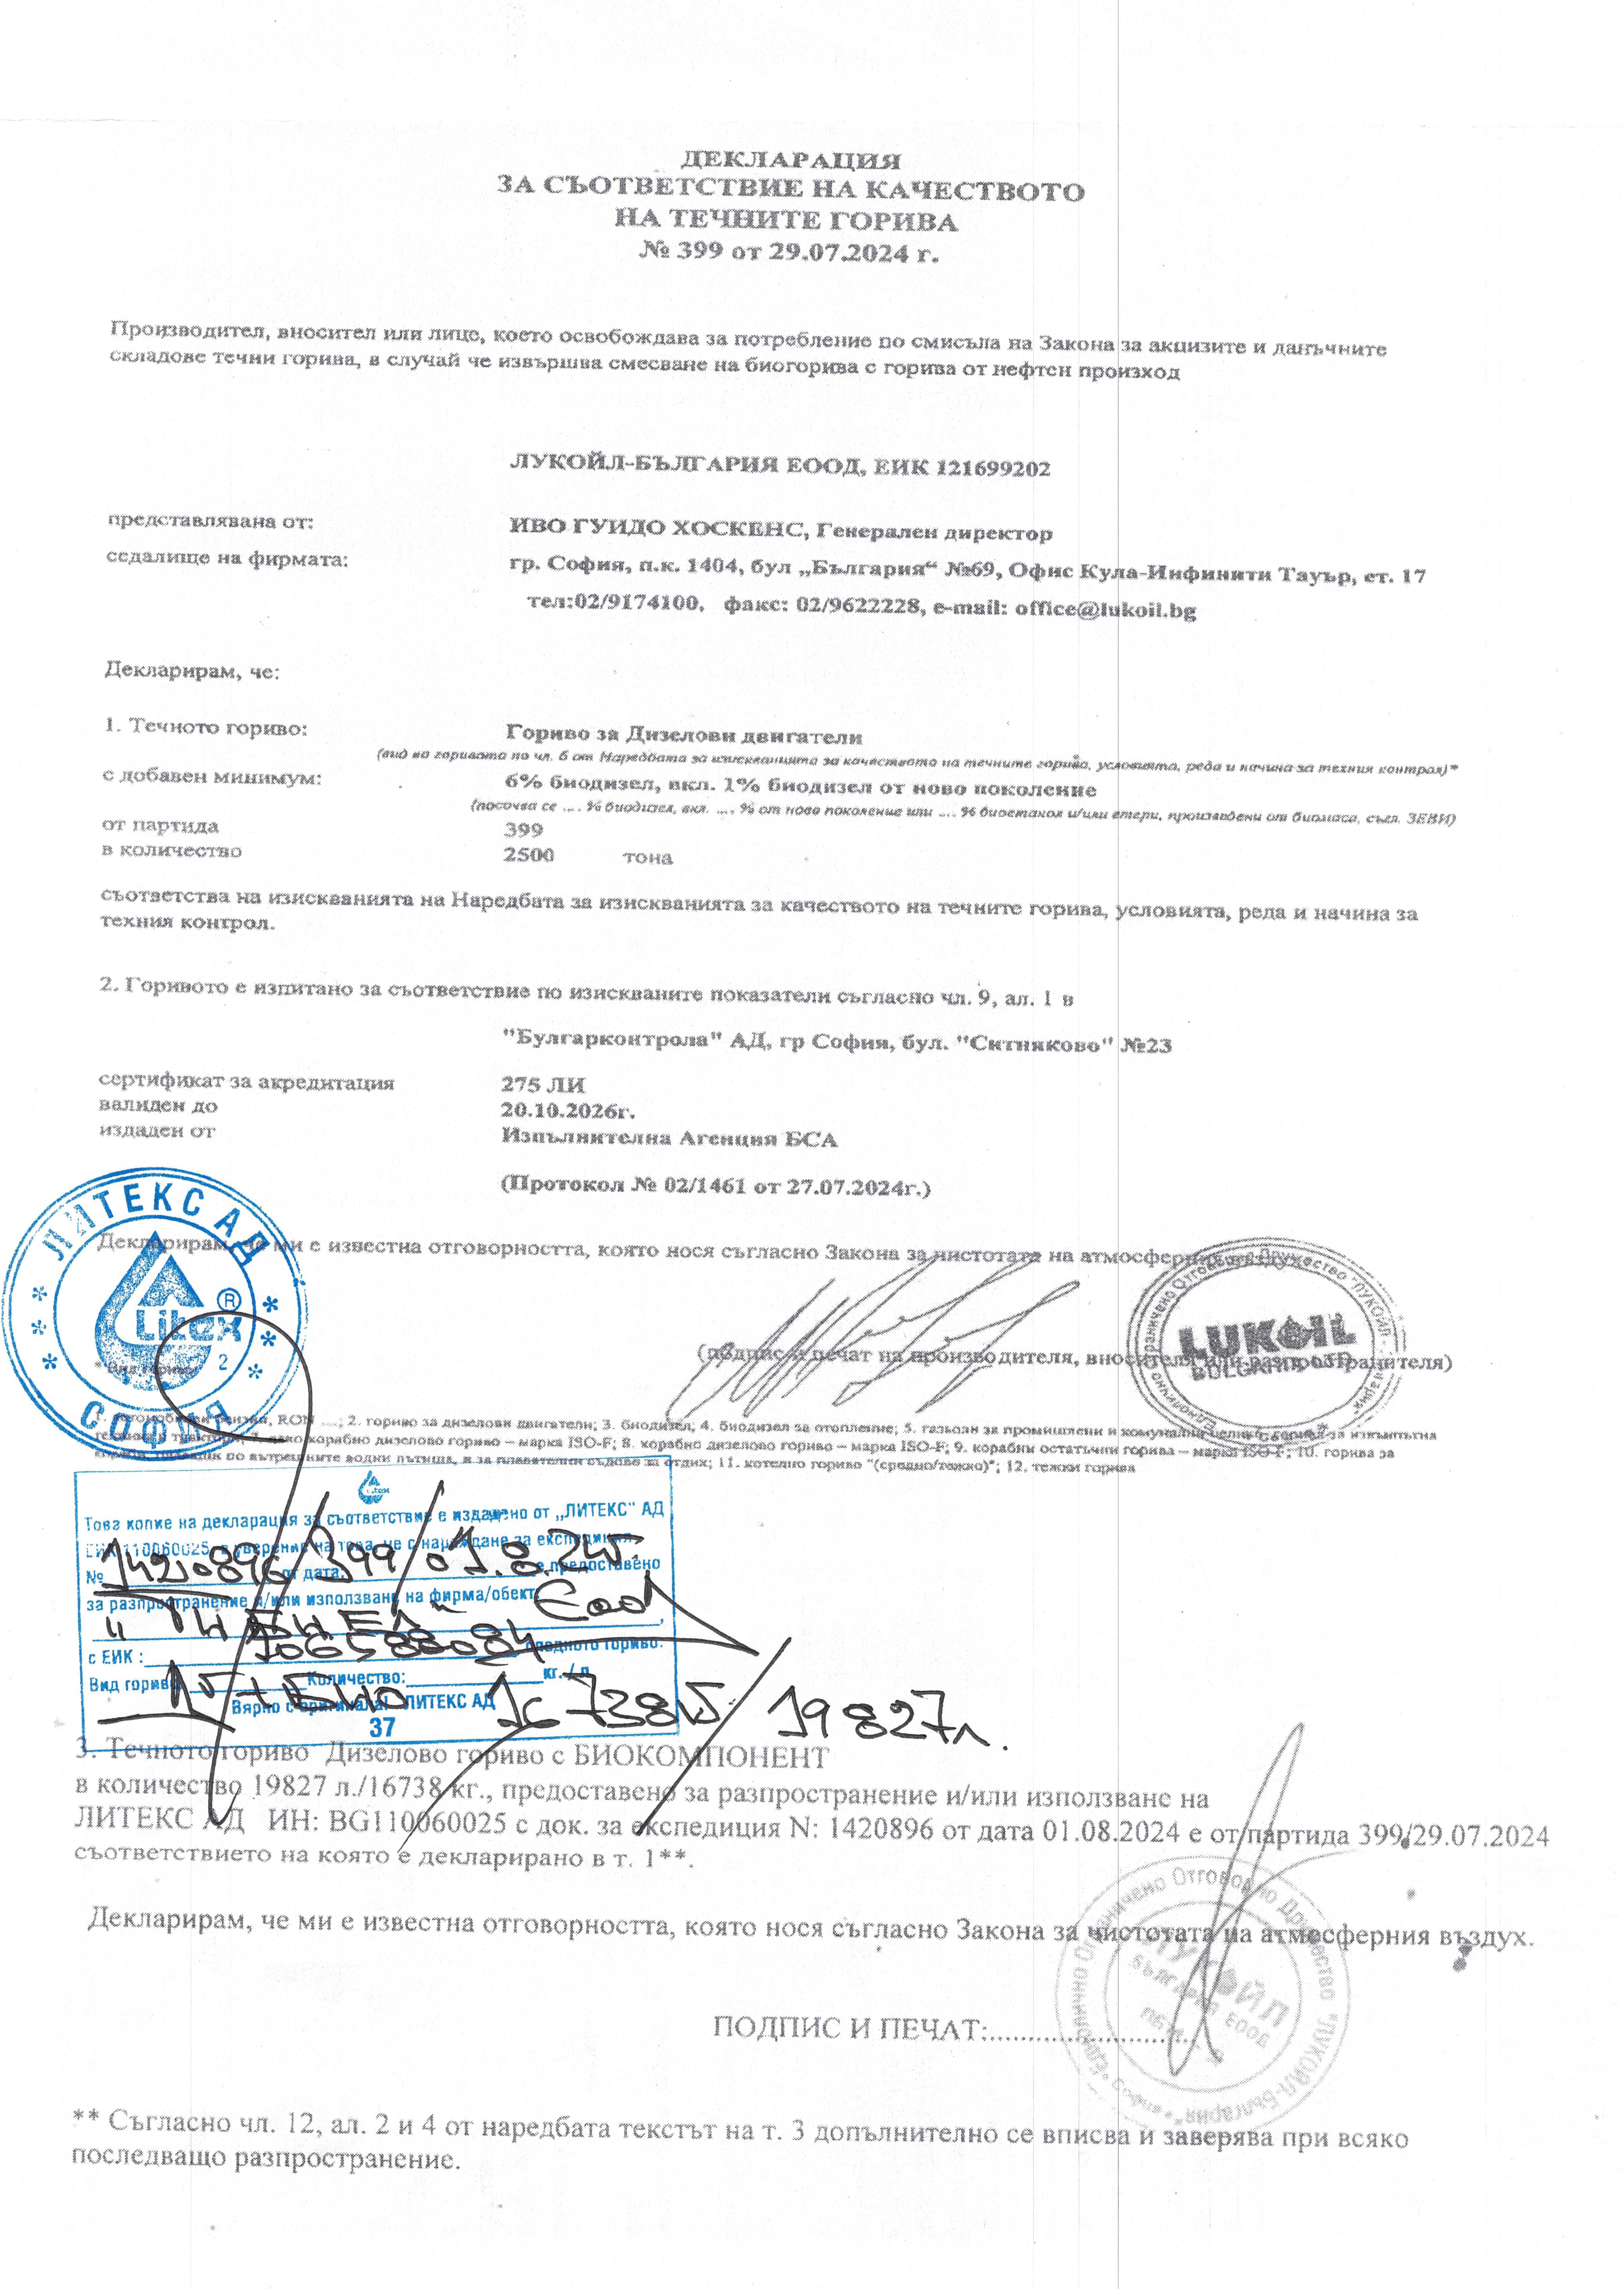 ДЕКЛАРАЦИЯ
ЗА СЪОТВЕТСТВИЕ НА КАЧЕСТВОТО
НА ТЕЧНИТЕ ГОРИВА
№ 399 от 29.07.2024 г.
Производител, вносител или лице, което освобождава за потребление по смисъла на Закона за акцизите и данъчните
складове течни горива, в случай че извършва смесване на биогорива с горива от нефтен произход
ЛУКОЙЛ-БЪЛГАРИЯ ЕООД, ЕИК 121699202
представлявана от: ИВО ГУИДО ХОСКЕНС, Генерален директор
седалище на фирмата: гр. София, п.к. 1404, бул „България“ №69, Офис Кула-Инфинити Тауър, ет. 17
тел:02/9174100, факс: 02/9622228, e-mail: office@lukoil.bg
Декларирам, че:
1. Течното гориво: Гориво за Дизелови двигатели
(вид на горивата по чл. 6 от Наредбата за изискванията за качеството на течните горива, условията, реда и начина за техния контрол)*
с добавен минимум: 6% биодизел, вкл. 1% биодизел от ново поколение
(посочва се .... % биодизел, вкл. .... % от ново поколение или .... % биоетанол и/или етери, произведени от биомаса, съгл. ЗЕВИ)
от партида 399
в количество 2500 тона
съответства на изискванията на Наредбата за изискванията за качеството на течните горива, условията, реда и начина за
техния контрол.
2. Горивото е изпитано за съответствие по изискваните показатели съгласно чл. 9, ал. 1 в
"Булгарконтрола" АД, гр София, бул. "Ситняково" №23
сертификат за акредитация 275 ЛИ
валиден до 20.10.2026г.
издаден от Изпълнителна Агенция БСА
(Протокол № 02/1461 от 27.07.2024г.)
ЛИТЕКС АД
Litex ®
2
СОФИЯ
Декларирам, че ми е известна отговорността, която нося съгласно Закона за чистотата на атмосферния въздух
LUKOIL
BULGARIA LTD
(подпис и печат на производителя, вносителя или разпространителя)
* Вид гориво
1. автомобилен бензин, RON ....; 2. гориво за дизелови двигатели; 3. биодизел; 4. биодизел за отопление; 5. газьол за промишлени и комунални цели; 6. гориво за извънпътна
техника и трактори; 7. леко корабно дизелово гориво – марка ISO-F; 8. корабно дизелово гориво – марка ISO-F; 9. корабни остатъчни горива – марка ISO-F; 10. горива за
по вътрешните водни пътища, и за плавателни съдове за отдих; 11. котелно гориво "(средно/тежко)"; 12. тежки горива
Litex
Това копие на декларация за съответствие е издадено от „ЛИТЕКС" АД
ЕИК 110060025, в уверение на това, че с нареждане за експедиция
№ 1420896 от дата: 399/01.8.24г. е предоставено
за разпространение и/или използване на фирма/обект:
ЕООД
с ЕИК : 106588084 следното гориво:
Вид гориво Количество: кг. / л.
16738 / 19827л.
Вярно с оригинала! ЛИТЕКС АД
37
3. Течното гориво Дизелово гориво с БИОКОМПОНЕНТ
в количество 19827 л./16738 кг., предоставено за разпространение и/или използване на
ЛИТЕКС АД ИН: BG110060025 с док. за експедиция N: 1420896 от дата 01.08.2024 е от партида 399/29.07.2024
съответствието на която е декларирано в т. 1**.
Декларирам, че ми е известна отговорността, която нося съгласно Закона за чистотата на атмосферния въздух.
ЛУКОЙЛ
БЪЛГАРИЯ ЕООД
ПОДПИС И ПЕЧАТ:
** Съгласно чл. 12, ал. 2 и 4 от наредбата текстът на т. 3 допълнително се вписва и заверява при всяко
последващо разпространение.